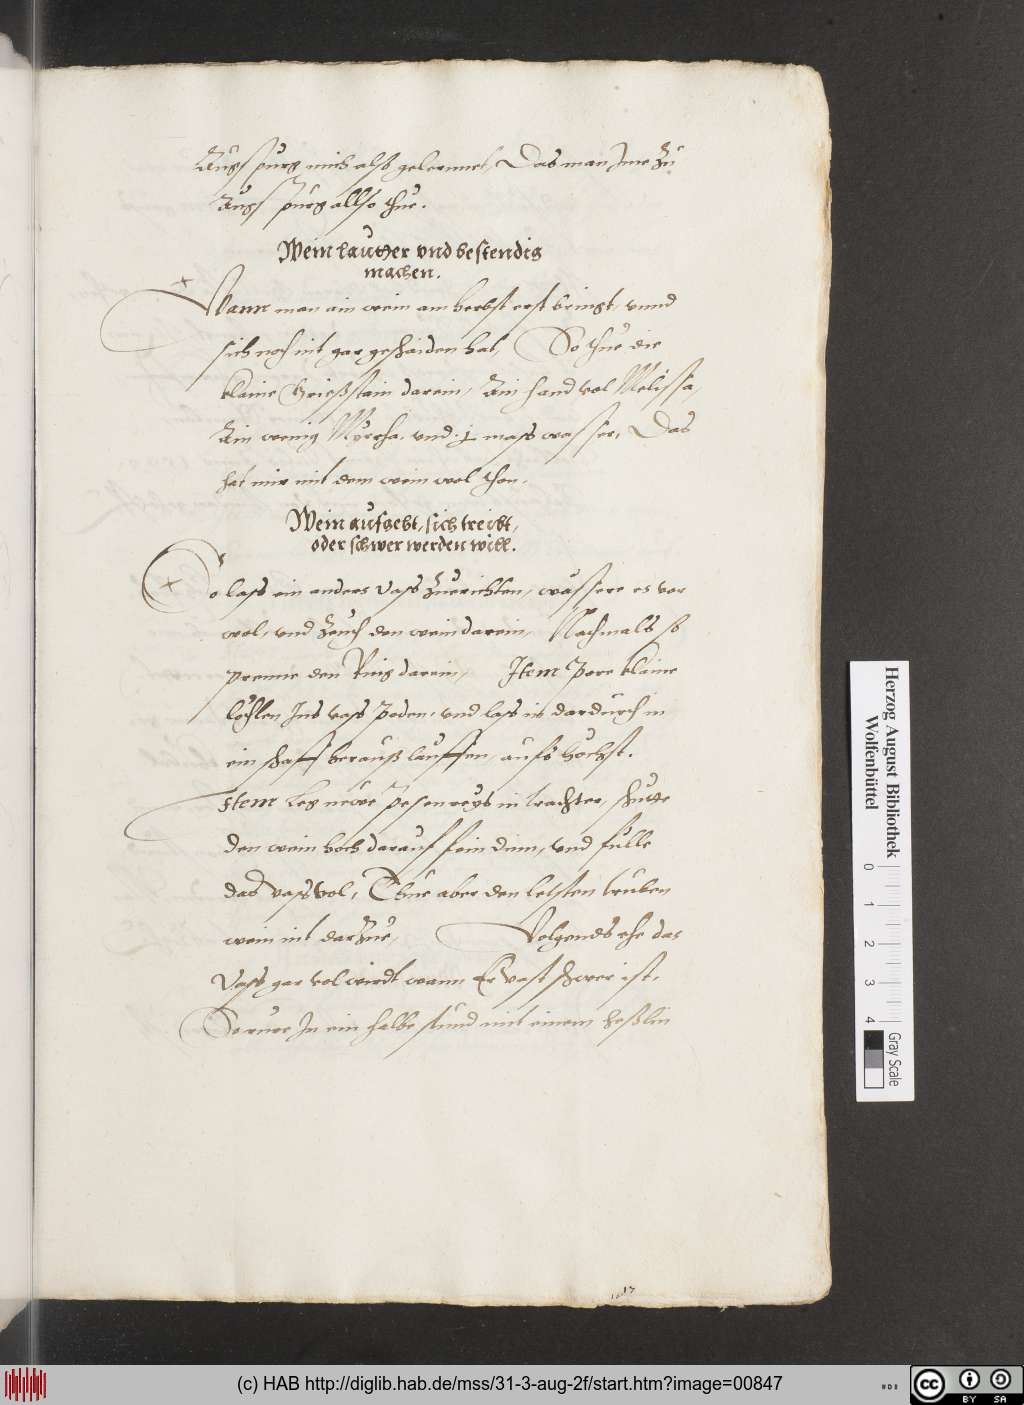 Augspurg mich alss gelernnet, Das man Ime zu
Augspurg allso thue.
Wein lautter vnd bestendig
machen.
Wann man ain wein am herbst erst bringt, vnnd
sich noch nit gar geschaiden hat, So thue die
klaine Grießstain darein, Ain hand vol Melissa,
Ain wenig Myrrha. vnd .j. mass wasser, Das
hat mir mit dem wein wol thon.
Wein aufsebt, sich treibt,
oder schwer werden will.
So lass ein anders Vass zuerichten, wassere es vor
wol, vnd zeuch den wein darein, Nachmals so
prenne den Ring darein, Item pore klaine
löchlen Ins vass poden, vnd lass in dardurch in
ein schaff herauß lauffen, aufs höchst.
Item Leg newe pesenreys in trachter, schutte
den wein hoch darauf fein dinn, vnd fulle
das vass vol, Thue aber den letsten truben
wein nit darzue, Volgends ehe das
Vass gar vol wirdt wann Er vast schwer ist,
So ruer In ein halbe stund mit einem
Herzog August Bibliothek
Wolfenbüttel
0 1 2 3 4
Gray Scale
(c) HAB http://diglib.hab.de/mss/31-3-aug-2f/start.htm?image=00847
cc BY SA